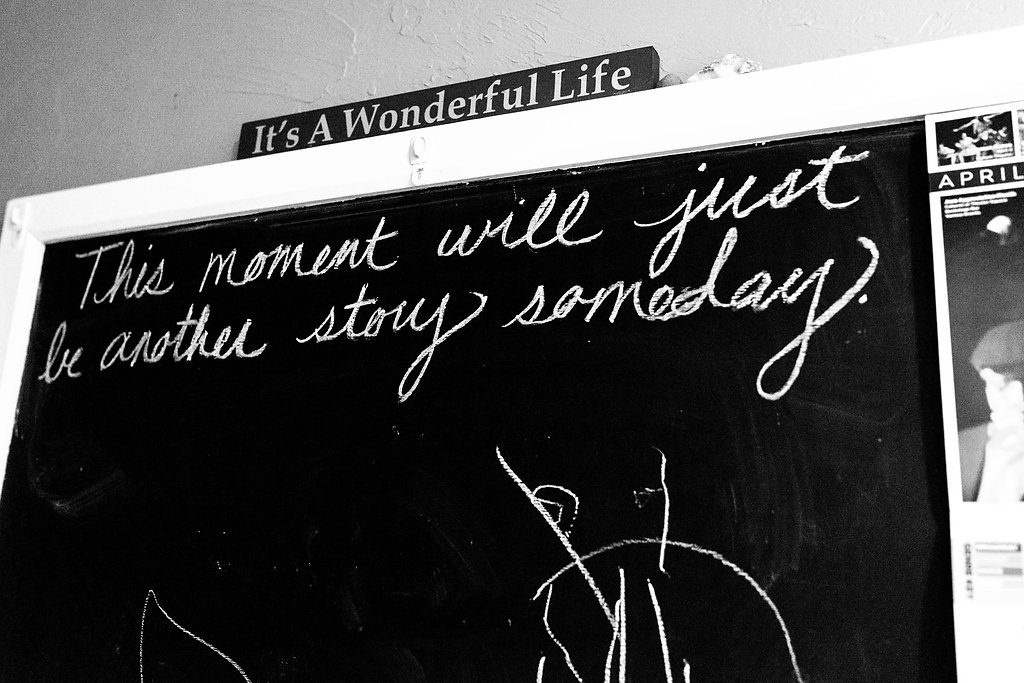 It's A Wonderful Life
This moment will just
be another story someday.
APRIL